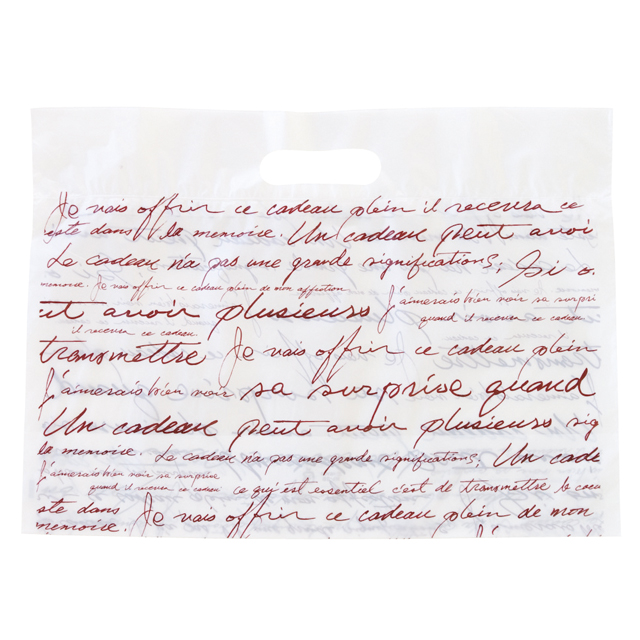 Je vais offrir ce cadeau plein il recevra ce
iste dans la memoire. Un cadeau peut avoi
Le cadeau n'a pas une grande significations; Si o.
memoire. Je vais offrir ce cadeau plein de mon affection
ut avoir plusieurs J'aimerais bien voir sa surpri
il recevra ce cadeau quand il recevra ce cadeau.
transmettre Je vais offrir ce cadeau plein
J'aimerais bien voir sa surprise quand
Un cadeau peut avoir plusieurs sig
la memoire. Le cadeau n'a pas une grande significations; Un cade
J'aimerais bien voir sa surprise
quand il recevra ce cadeau ce qui est essentiel c'est de transmettre le coeu
ste dans Je vais offrir ce cadeau plein de mon
memoire.